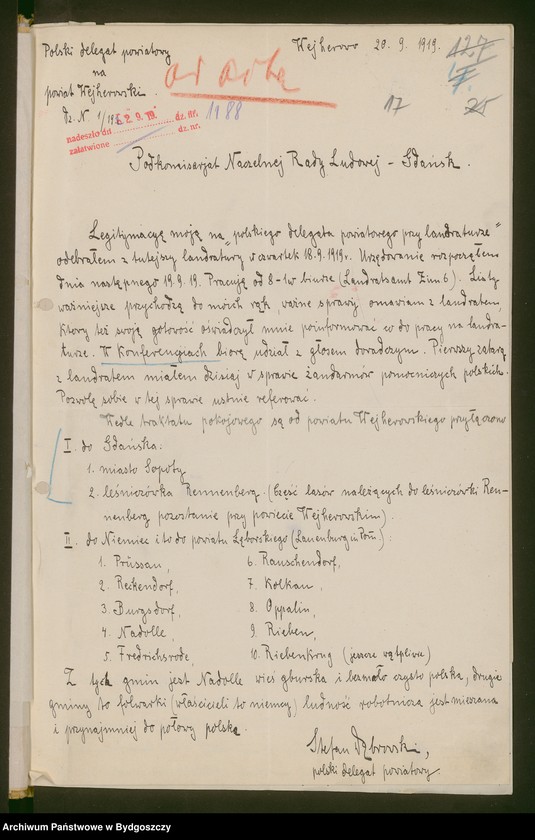 Polski delegat powiatowy
na
powiat Wejherowski.
Dz. N. 1/19
Wejherowo 20. 9. 1919.
127
17
25
ad acta
nadeszło dn. 22. 9. 19. dz. nr. 1188
załatwione dz. nr.
Podkomisarjat Naczelnej Rady Ludowej – Gdańsk.
Legitymacyą moją na „polskiego delegata powiatowego przy landraturze"
odebrałem z tutejszej landratury w czwartek 18.9.1919 r. Urzędowanie rozpocząłem
dnia następnego 19.9.19. Pracują od 8–1 w biurze (Landratsamt Zim 6). Listy
ważniejsze przychodzą do moich rąk, ważne sprawy omawiam z landratem,
który też swoją gotowość oświadczył mnie poinformować co do pracy na landra-
turze. W konferencjach biorę udział z głosem doradczym. Pierwszy zatarg
z landratem miałem dzisiaj w sprawie żandarmów pomocniczych polskich.
Pozwolę sobie w tej sprawie ustnie referować.
Wedle traktatu pokojowego są od powiatu Wejherowskiego przyłączone
I. do Gdańska:
1. miasto Sopoty
2. leśniczówka Rennenberg. (Część lasów należących do leśniczówki Ren-
nenberg pozostanie przy powiecie Wejherowskim).
II. do Niemiec i to do powiatu Lęborskiego (Lauenburg in Pom):
1. Prüssau,
2. Reckendorf,
3. Burgsdorf,
4. Nadolle,
5. Fredrichsrode,
6. Rauschendorf,
7. Kolkau,
8. Oppalin,
9. Rieben,
10. Riebenkrug (jeszcze wątpliwe)
Z tych gmin jest Nadolle wieś gburska i bezmało czysto polska, drugie
gminy to folwarki (właścicieli to niemcy) ludność robotnicza jest mieszana
i przynajmniej do połowy polska.
Stefan Dąbrowski,
polski delegat powiatowy.
Archiwum Państwowe w Bydgoszczy